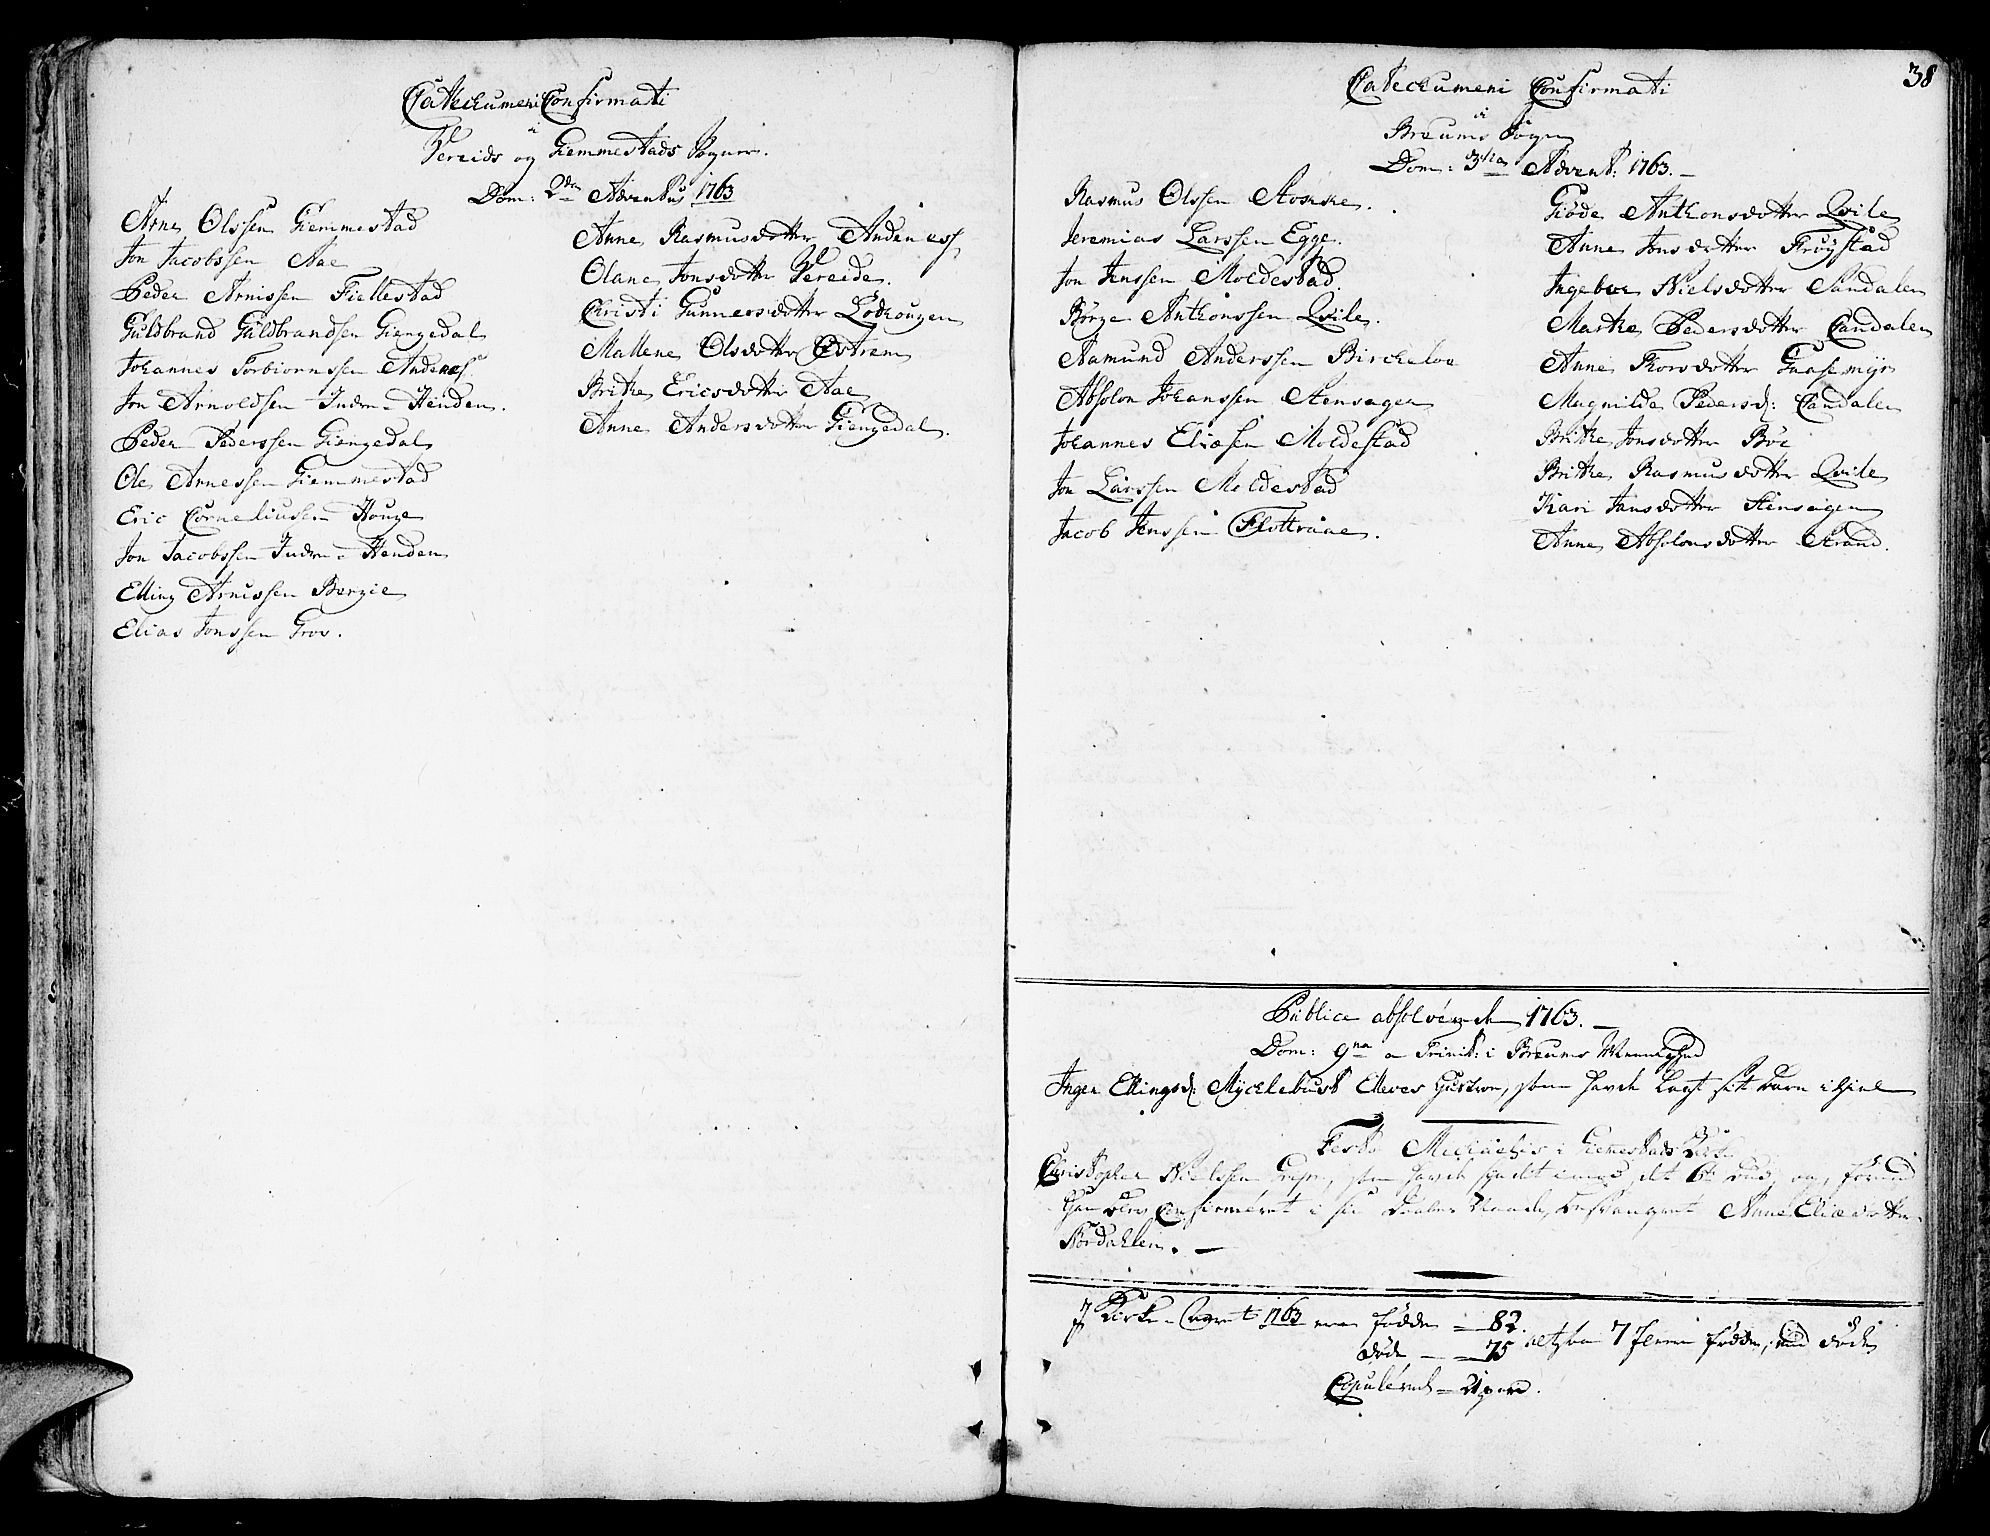 Catechumeni Confirmati
i
Vereids og Giemmestads Sogner.
Dom: 2da Adventus 1763
Arne Olssen Giemmestad
Jon Jacobssen Aae
Peder Arnissen Fiellestad
Guldbrand Guldbrandsen Giengedal
Johannes Torbiornssen Andenæs
Jon Arnoldsen Indre-Henden.
Peder Pederssen Giengedal
Ole Arnessen Giemmestad
Eric Corneliussen Houge
Jon Jacobssen Indre-Henden
Elling Arnessen Bergie
Elias Jonssen Trov.
Anne Rasmusdotter Andeness
Olane Jonsdotter Vereide.
Christi Gunnersdotter Lodhougen
Mallene Olsdotter Østrem
Brithe Ericsdotter Aae
Anne Andersdotter Giengedal.
38
Catechumeni Confirmati
i
Breums Sogn
Dom: 3tia Advent: 1763.
Rasmus Olssen Aoske.
Jeremias Larssen Egge.
Jon Jenssen Moldestad.
Börge Anthonssen Qvile.
Aamund Anderssen Birckeloe
Absolon Johanssen Stensager
Johannes Eliæsen Moldestad
Jon Larssen Moldestad
Jacob Jenssen Flottraae.
Giöde Anthonsdotter Qvile
Anne Jonsdotter Fröystad
Ingebor Nielsdotter Sandalen
Marthe Pedersdotter Sandalen
Anne Thorsdotter Gaasemyr
Magnilde Pedersd: Sandalen
Brithe Jonsdotter Böe
Brithe Rasmusdotter Qvile
Kari Jansdotter Stensagen
Anne Absolonsdotter Strand.
Publice absolverede 1763.
Dom: 9na a Trinit: i Breums Menighed
Inger Ellingsd. Myklebust Elleves Hustroe, som havde lagt sit Barn ihiel
Festo Michaelis i Giemmestads Kirke
Christopher Nielssen, som havde syndet imod det 6te Bud, og, förend
han blev Confirmeret i sin Daabes Naade, besvangret Anne Eliædotter
Nordahlen.
I Kirke-Aaret 1763 ere födde = 82. altsaa 7 flere födde, end döde
döde - 75
Copulerede - par.